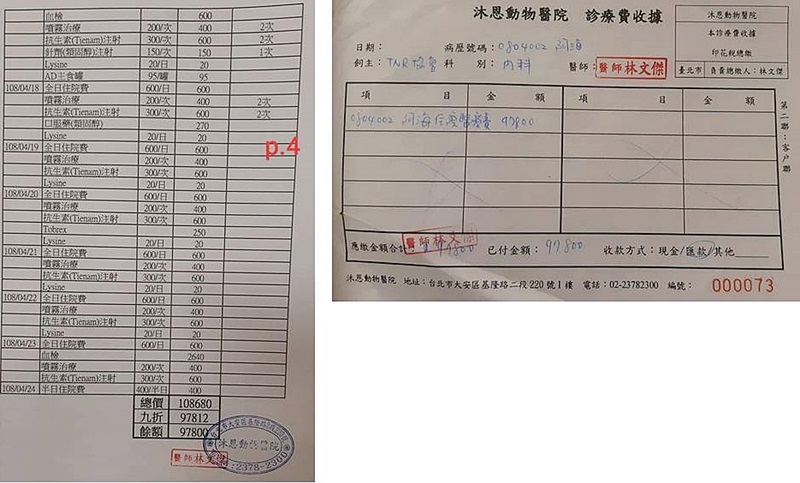 血檢 600
噴霧治療 200/次 400 2次
抗生素(Tienam)注射 300/次 600 2次
針劑(類固醇)注射 150/次 150 1次
Lysine 20/日 20
AD主食罐 95/罐 95
108/04/18 全日住院費 600/日 600
噴霧治療 200/次 400 2次
抗生素(Tienam)注射 300/次 600 2次
口服藥(類固醇) 270
Lysine 20/日 20
108/04/19 全日住院費 600/日 600
噴霧治療 200/次 400
抗生素(Tienam)注射 300/次 600
Lysine 20/日 20
108/04/20 全日住院費 600/日 600
噴霧治療 200/次 400
抗生素(Tienam)注射 300/次 600
Tobrex 250
Lysine 20/日 20
108/04/21 全日住院費 600/日 600
噴霧治療 200/次 400
抗生素(Tienam)注射 300/次 600
Lysine 20/日 20
108/04/22 全日住院費 600/日 600
噴霧治療 200/次 400
抗生素(Tienam)注射 300/次 600
Lysine 20/日 20
108/04/23 全日住院費 600/日 600
血檢 2640
噴霧治療 200/次 400
抗生素(Tienam)注射 300/次 600
108/04/24 半日住院費 400/半日 400
總價 108680
九折 97812
餘額 97800
p.4
沐恩動物醫院
2378-2300
醫師林文傑
沐恩動物醫院 診療費收據
沐恩動物醫院
本診療費收據
印花稅總繳
臺北市 負責總繳人：林文傑
日期： 病歷號碼：0804002
飼主：TNR協會 科別：內科 醫師：醫師林文傑
項目 金額 項目 金額
0804002 阿海住院醫療費 97800
第二聯：客戶聯
應繳金額合計： 97800 已付金額：97800 收款方式：現金/匯款/其他
醫師林文傑
沐恩動物醫院 地址：台北市大安區基隆路二段220號1樓 電話：02-23782300 編號： 000073